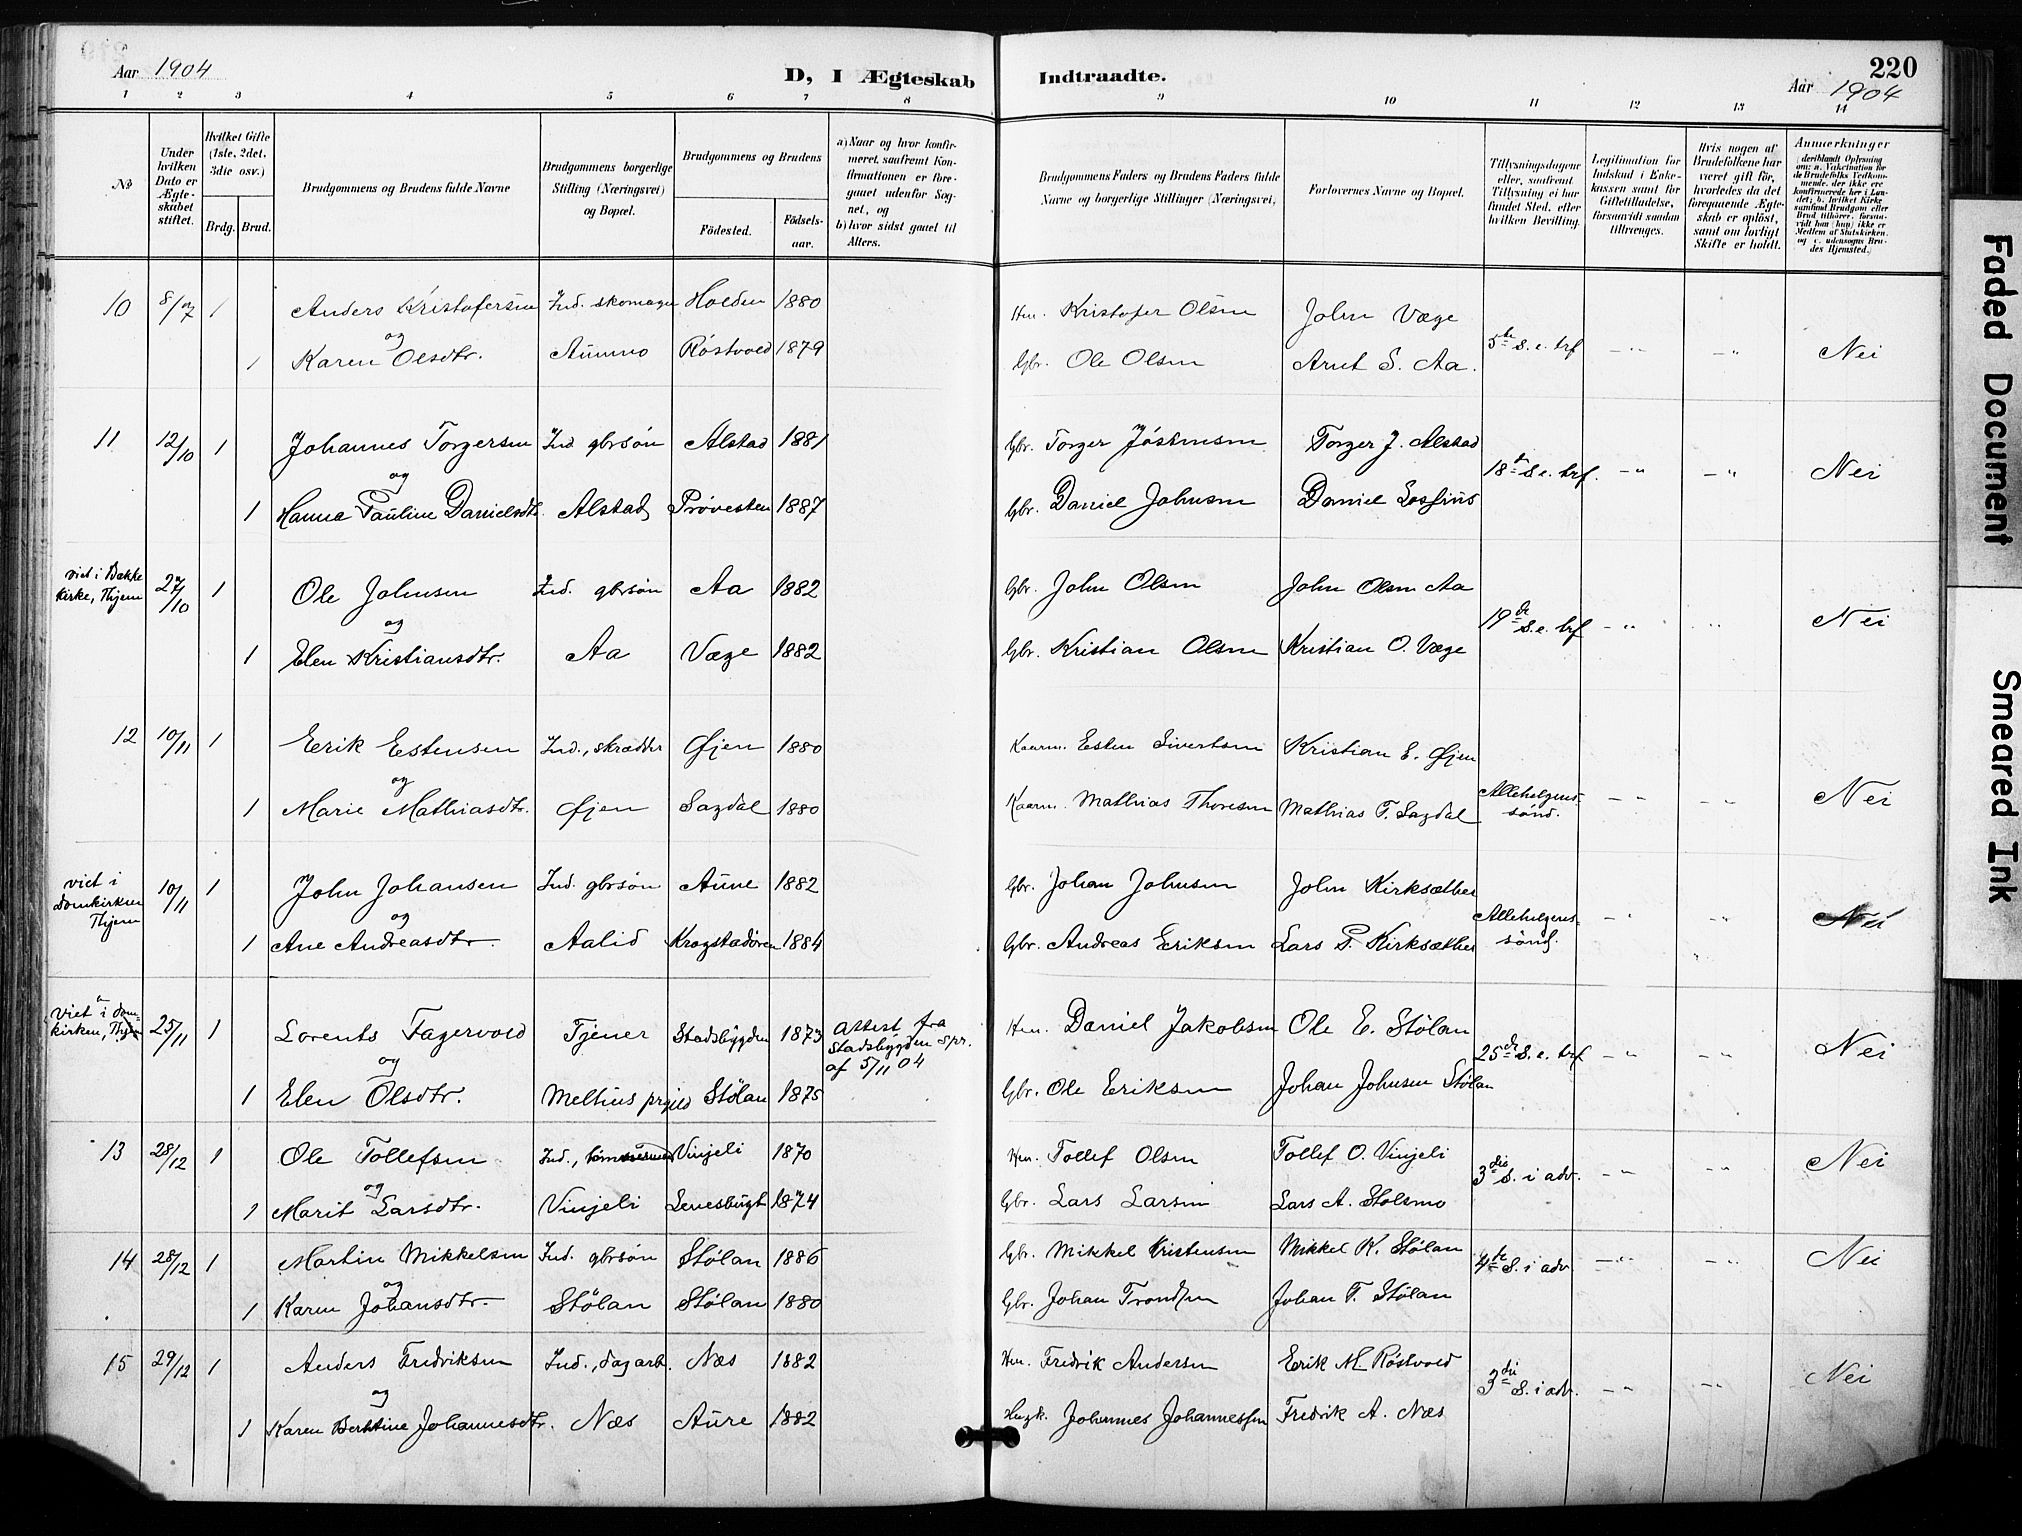 Aar 1904
D, I Ægteskab
Indtraadte.
220
Aar 1904
1 2 3 4 5 6 7 8 9 10 11 12 13 14
№
Under hvilken Dato er Ægteskabet stiftet.
Hvilket Gifte (1ste, 2det, 3die osv.)
Brdg. Brud.
Brudgommens og Brudens fulde Navne
Brudgommens borgerlige Stilling (Næringsvei) og Bopæl.
Brudgommens og Brudens
Fødested. Fødselsaar.
a) Naar og hvor konfirmeret, saafremt Konfirmationen er foregaaet udenfor Sognet, og
b) hvor sidst gaaet til Alters.
Brudgommens Faders og Brudens Faders fulde Navne og borgerlige Stillinger (Næringsvei,
Forlovernes Navne og Bopæl.
Tillysningsdagene eller, saafremt Tillysning ei har fundet Sted, efter hvilken Bevilling.
Legitimation for Indskud i Enkekassen samt for Giftetilladelse, forsaavidt saadan tiltrænges.
Hvis nogen af Brudefolkene har været gift før, hvorledes da det foregaaende Ægteskab er opløst, samt om lovligt Skifte er holdt.
Anmerkninger (deriblandt Oplysning om: a. Vakcination for de Brudefolks Vedkommende, der ikke ere konfirmerede her i Landet; b. hvilket Kirkesamfund Brudgom eller Brud tilhører, forsaavidt han (hun) ikke er Medlem af Statskirken, og c. udensogns Brudes Hjemsted.)
10 8/7 1 Anders Kristofersen Ind. skomager Holden 1880 Hm. Kristofer Olsen John Væge
og
1 Karen Olsdtr. Aunmo Röstvold 1879 Gbr. Ole Olsen Arnt S. Aa. 5te S. e. trf —"— —"— Nei
11 12/10 1 Johannes Torgersen Ind gbrsøn Alstad 1881 Gbr. Torger Torger J. Alstad
og
1 Hanna Pauline Danielsdtr. Alstad Prøvesten 1887 Gbr. Daniel Johnsen Daniel Lossius 18de S. e. trf. —"— —"— Nei
viet i Bakke kirke, Thjem 27/10 1 Ole Johnsen Ind. gbrsøn Aa 1882 Gbr. John Olsen John Olsen Aa
og
1 Elen Kristiansdtr. Aa Væge 1882 Gbr. Kristian Olsen Kristian O. Væge 19de S. e. trf —"— " Nei
12 10/11 1 Eerik Estensen Ind., skrædder Øjen 1880 Kaarm. Esten Sivertsen Kristian E. Øjen
og
1 Marie Mathiasdtr. Øjen Sagdal 1880 Kaarm. Mathias Thoresen Mathias T. Sagdal Allehelgens sønd. —"— —"— Nei
viet i Domkirken Thjem 10/11 1 John Johansen Ind. gbrsøn Aune 1882 Gbr. Johan Johnsen John Kirksæther
og
1 Ane Andreasdtr. Aalid Krogstadøren 1884 Gbr. Andreas Eriksen Lars P. Kirksæther Allehelgens sønd. —"— —"— Nei
Viet i Domkirken, Thjem 25/11 1 Lorents Fagervold Tjener Stadsbygden 1873 Attest fra Stadsbygden spr. af 5/11 04 Hm. Daniel Jakobsen Ole E. Stölan
og
1 Elen Olsdtr. Melhus prgjld Stölan 1875 Gbr. Ole Eriksen Johan Johnsen Stölan 25de S. e. trf —"— —"— Nei
13 28/12 1 Ole Tollefsen Ind., Vinjeli 1870 Hm. Tollef Olsen Tollef O. Vinjeli
og
1 Marit Larsdtr. Vinjeli Lenesbugt 1874 Gbr. Lars Larsen Lars A. Stolsmo 3die S. i adv. —"— —"— Nei
14 28/12 1 Martin Mikkelsen Ind. gbrsøn Stölan 1886 Gbr. Mikkel Kristensen Mikkel K. Stölan
og
1 Karen Johansdtr. Stölan Stölan 1880 Gbr. Johan Trondsen Johan T. Stölan 4de S. i adv —"— —"— Nei
15 29/12 1 Anders Fredriksen Ind., dagarb. Næs 1882 Hm. Fredrik Andersen Eerik M. Röstvold
og
1 Karen Berntine Johannesdtr. Næs Aure 1882 Johannes Johannessen Fredrik A. Næs 3die S. i adv. —"— —"— Nei
Faded Document
Smeared Ink